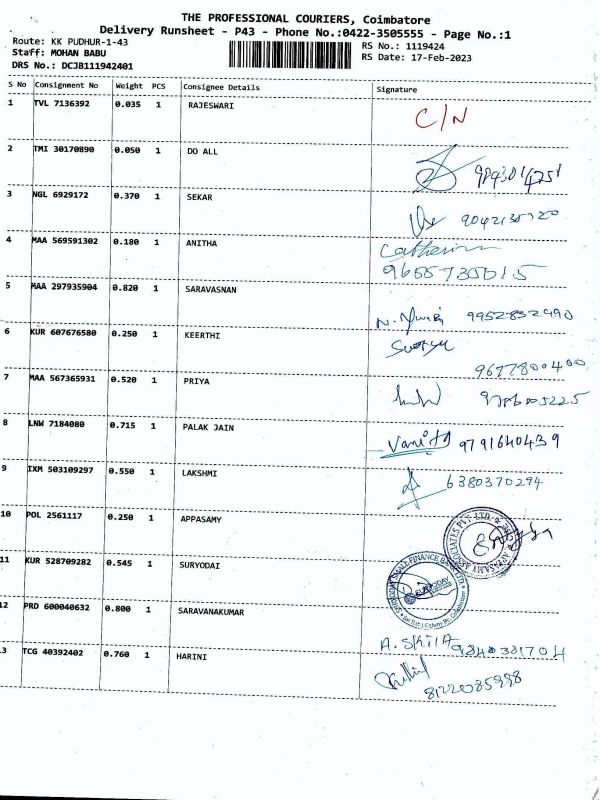 THE PROFESSIONAL COURIERS, Coimbatore
Delivery Runsheet - P43 - Phone No.:0422-3505555 - Page No.:1
Route: KK PUDHUR-1-43
Staff: MOHAN BABU
DRS No.: DCJB111942401
RS No.: 1119424
RS Date: 17-Feb-2023
S No Consignment No Weight PCS Consignee Details Signature
1 TVL 7136392 0.035 1 RAJESWARI C/N
2 TMI 30170890 0.050 1 DO ALL
3 NGL 6929172 0.370 1 SEKAR
4 MAA 569591302 0.180 1 ANITHA
9655735015
5 MAA 297935904 0.820 1 SARAVASNAN
9952832490
6 KUR 607676580 0.250 1 KEERTHI
9677800400
7 MAA 567365931 0.520 1 PRIYA
8 LNW 7184080 0.715 1 PALAK JAIN
9791640439
9 IXM 503109297 0.550 1 LAKSHMI 6380370294
10 POL 2561117 0.250 1 APPASAMY
11 KUR 528709282 0.545 1 SURYODAI
12 PRD 600040632 0.800 1 SARAVANAKUMAR
13 TCG 40392402 0.760 1 HARINI